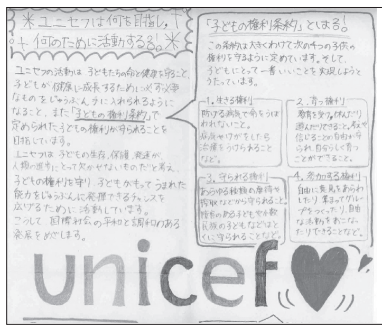 ユニセフは何を目指し、
何のために活動する？！
ユニセフの活動は、子どもたちの命と健康を守ること、
子どもが健康に成長するために必要
なものをじゅうぶん手に入れられるように
なること、また「子どもの権利条約」で
定められた子どもの権利が守られることを
目指しています。
ユニセフは子どもの生存、保護、発達が、
人類の進歩にとって欠かせないものだと考え、
子どもの権利を守り、子どもがもって生まれた
能力をじゅうぶんに発揮できるチャンスを
広げるために活動しています。
こうして国際社会の平和と調和のある
発展をめざします。
「子どもの権利条約」とは？！
この条約は大きくわけて次の4つの子供の
権利を守るように定めています。そして、
子どもにとって一番いいことを実現しようと
うたっています。
1. 生きる権利
防げる病気で命をうば
われないこと。
病気やけがをしたら
治療をうけられることな
ど。
2. 育つ権利
教育を受け、休んだり
遊んだりできること。
信じることの自由が守
られ、自分らしく育つ
ことができること。
3. 守られる権利
あらゆる種類の虐待や
搾取などから守られること。
障害のある子どもや少数
民族の子どもなどはと
くに守られることなど。
4. 参加する権利
自由に意見をあらわし
たり、集まってグルー
プをつくったり、自由
な活動をおこな
ったりできることなど。
unicef